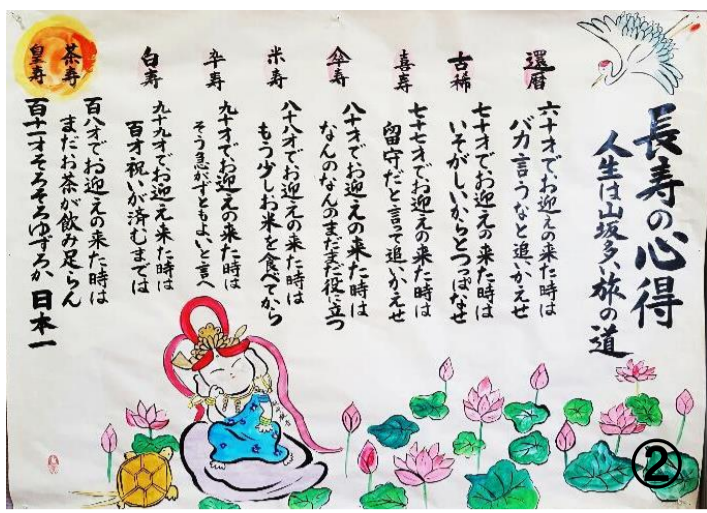 長寿の心得
人生は山坂多い旅の道
還暦
六十才でお迎えの来た時は
バカ言うなと追いかえせ
古稀
七十才でお迎えの来た時は
いそがしいからとつっぱなせ
喜寿
七十七才でお迎えの来た時は
留守だと言って追いかえせ
傘寿
八十才でお迎えの来た時は
なんのなんのまだまだ役に立つ
米寿
八十八才でお迎えの来た時は
もう少しお米を食べてから
卒寿
九十才でお迎えの来た時は
そう急がずともよいと言へ
白寿
九十九才でお迎え来た時は
百才祝いが済むまでは
茶寿
百八才でお迎えの来た時は
まだお茶が飲み足らん
皇寿
百十一才そろそろゆずろか 日本一
②